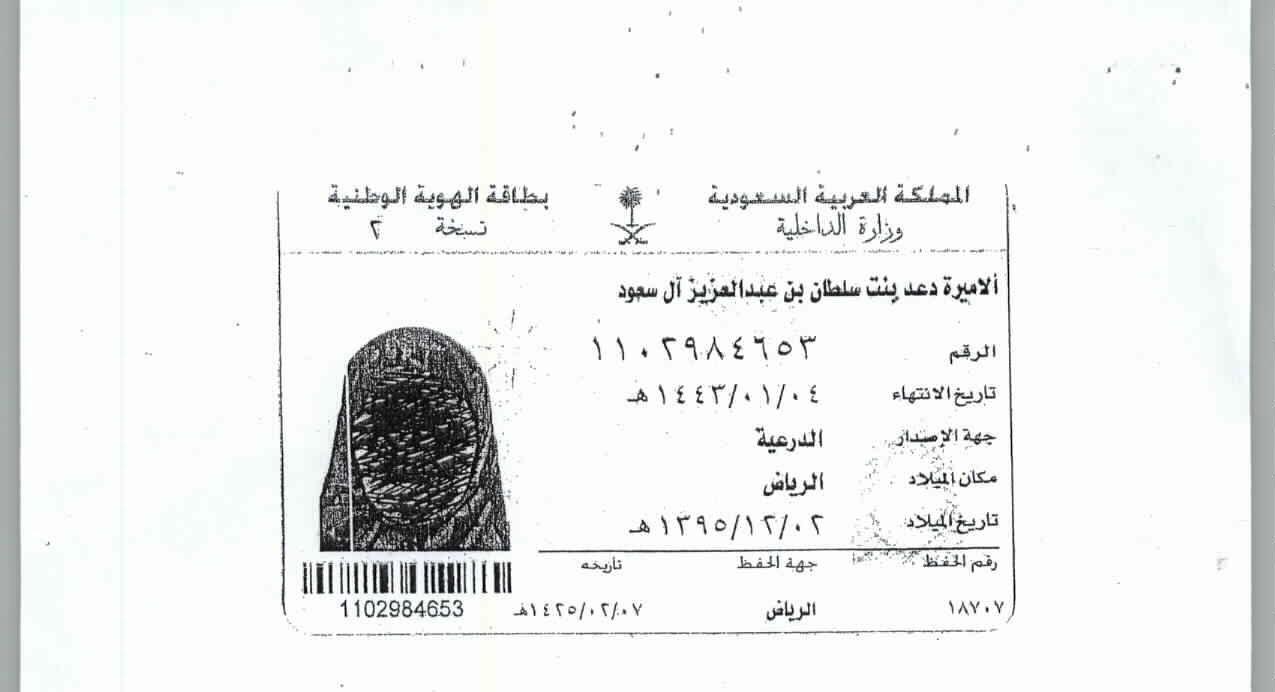 المملكة العربية السعودية
وزارة الداخلية
بطاقة الهوية الوطنية
نسخة ٢
ألاميرة دعد بنت سلطان بن عبدالعزيز آل سعود
الرقم ١١٠٢٩٨٤٦٥٣
تاريخ الانتهاء ١٤٤٣/٠١/٠٤ هـ
جهة الإصدار الدرعية
مكان الميلاد الرياض
تاريخ الميلاد ١٣٩٥/١٢/٠٢ هـ
رقم الحفظ جهة الحفظ تاريخه
١٨٧٠٧ الرياض ١٤٢٥/٠٢/٠٧هـ
1102984653